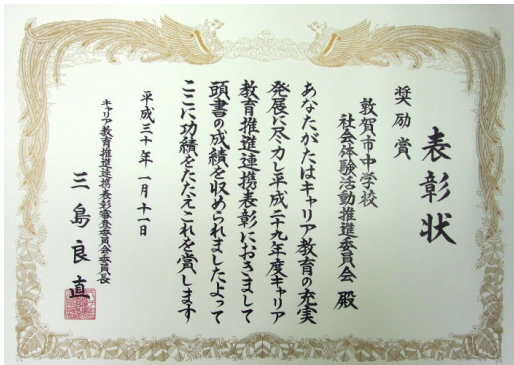 表彰状
奨励賞
敦賀市中学校
社会体験活動推進委員会 殿
あなたがたはキャリア教育の充実
発展に尽力し平成二十九年度キャリア
教育推進連携表彰におきまして
頭書の成績を収められましたよって
ここに功績をたたえこれを賞します
平成三十年一月十一日
キャリア教育推進連携表彰審査委員会委員長
三島良直